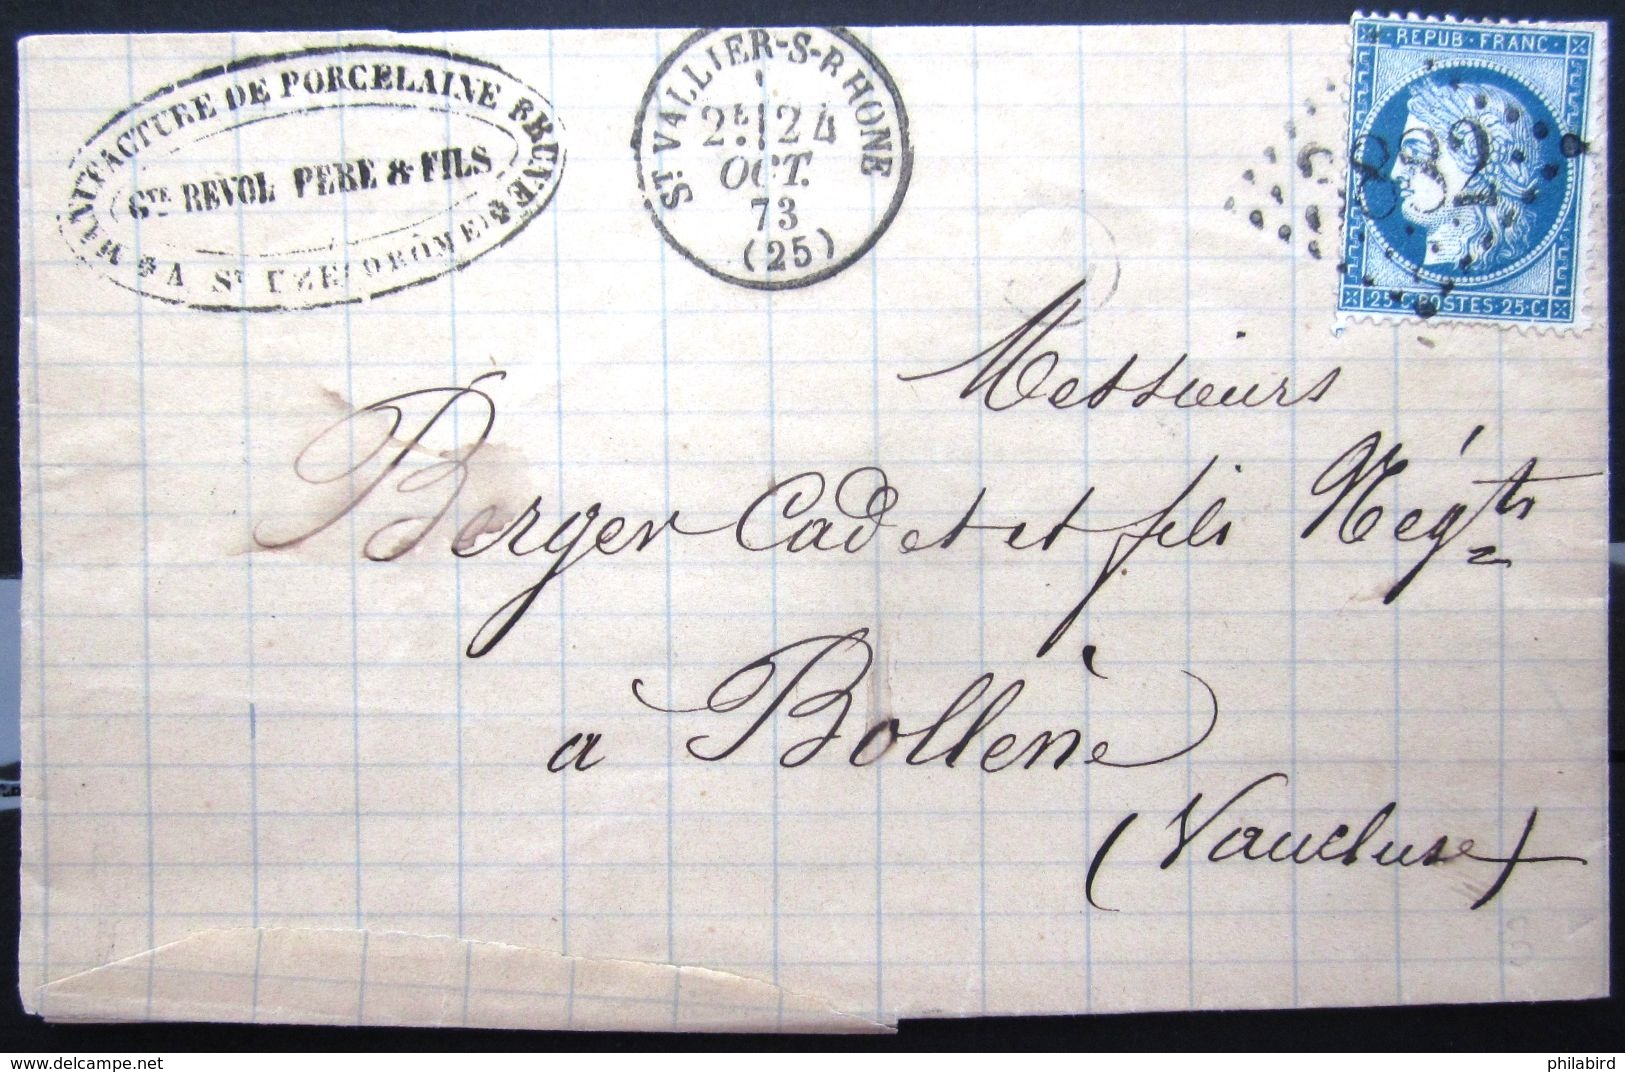 MANUFACTURE DE PORCELAINE BRUNE
Gve REVOL PERE & FILS
A St UZE (DROME)
ST. VALLIER-S-RHONE
2E 24
OCT.
73
(25)
REPUB·FRANC
3832
25·C·POSTES·25·C·
Messieurs
Berger Cadet et fils Négts
a Bollène
(Vaucluse)
delcampe.net
philabird